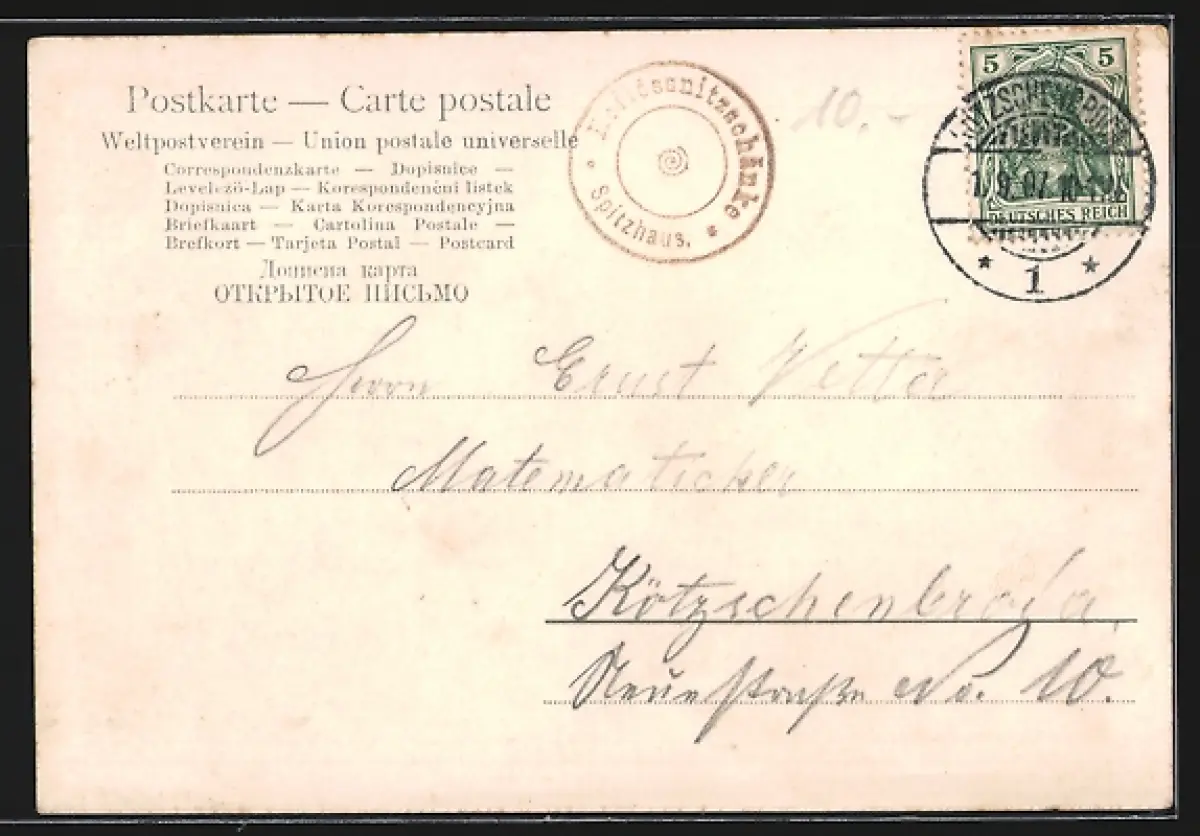 Postkarte — Carte postale
Weltpostverein — Union postale universelle
Correspondenzkarte — Dopisnice —
Levelező-Lap — Korespondenční listek
Dopisnica — Karta Korespondencyjna
Briefkaart — Cartolina Postale —
Brefkort — Tarjeta Postal — Postcard
Дописна карта
ОТКРЫТОЕ ПИСЬМО
Spitzhaus.
10.-
5 5
DEUTSCHES REICH
1.9.07. 10-11
* 1 *
Herrn Ernst
Matematicker
Kötzschenbroda,
Neuestraße No. 10.